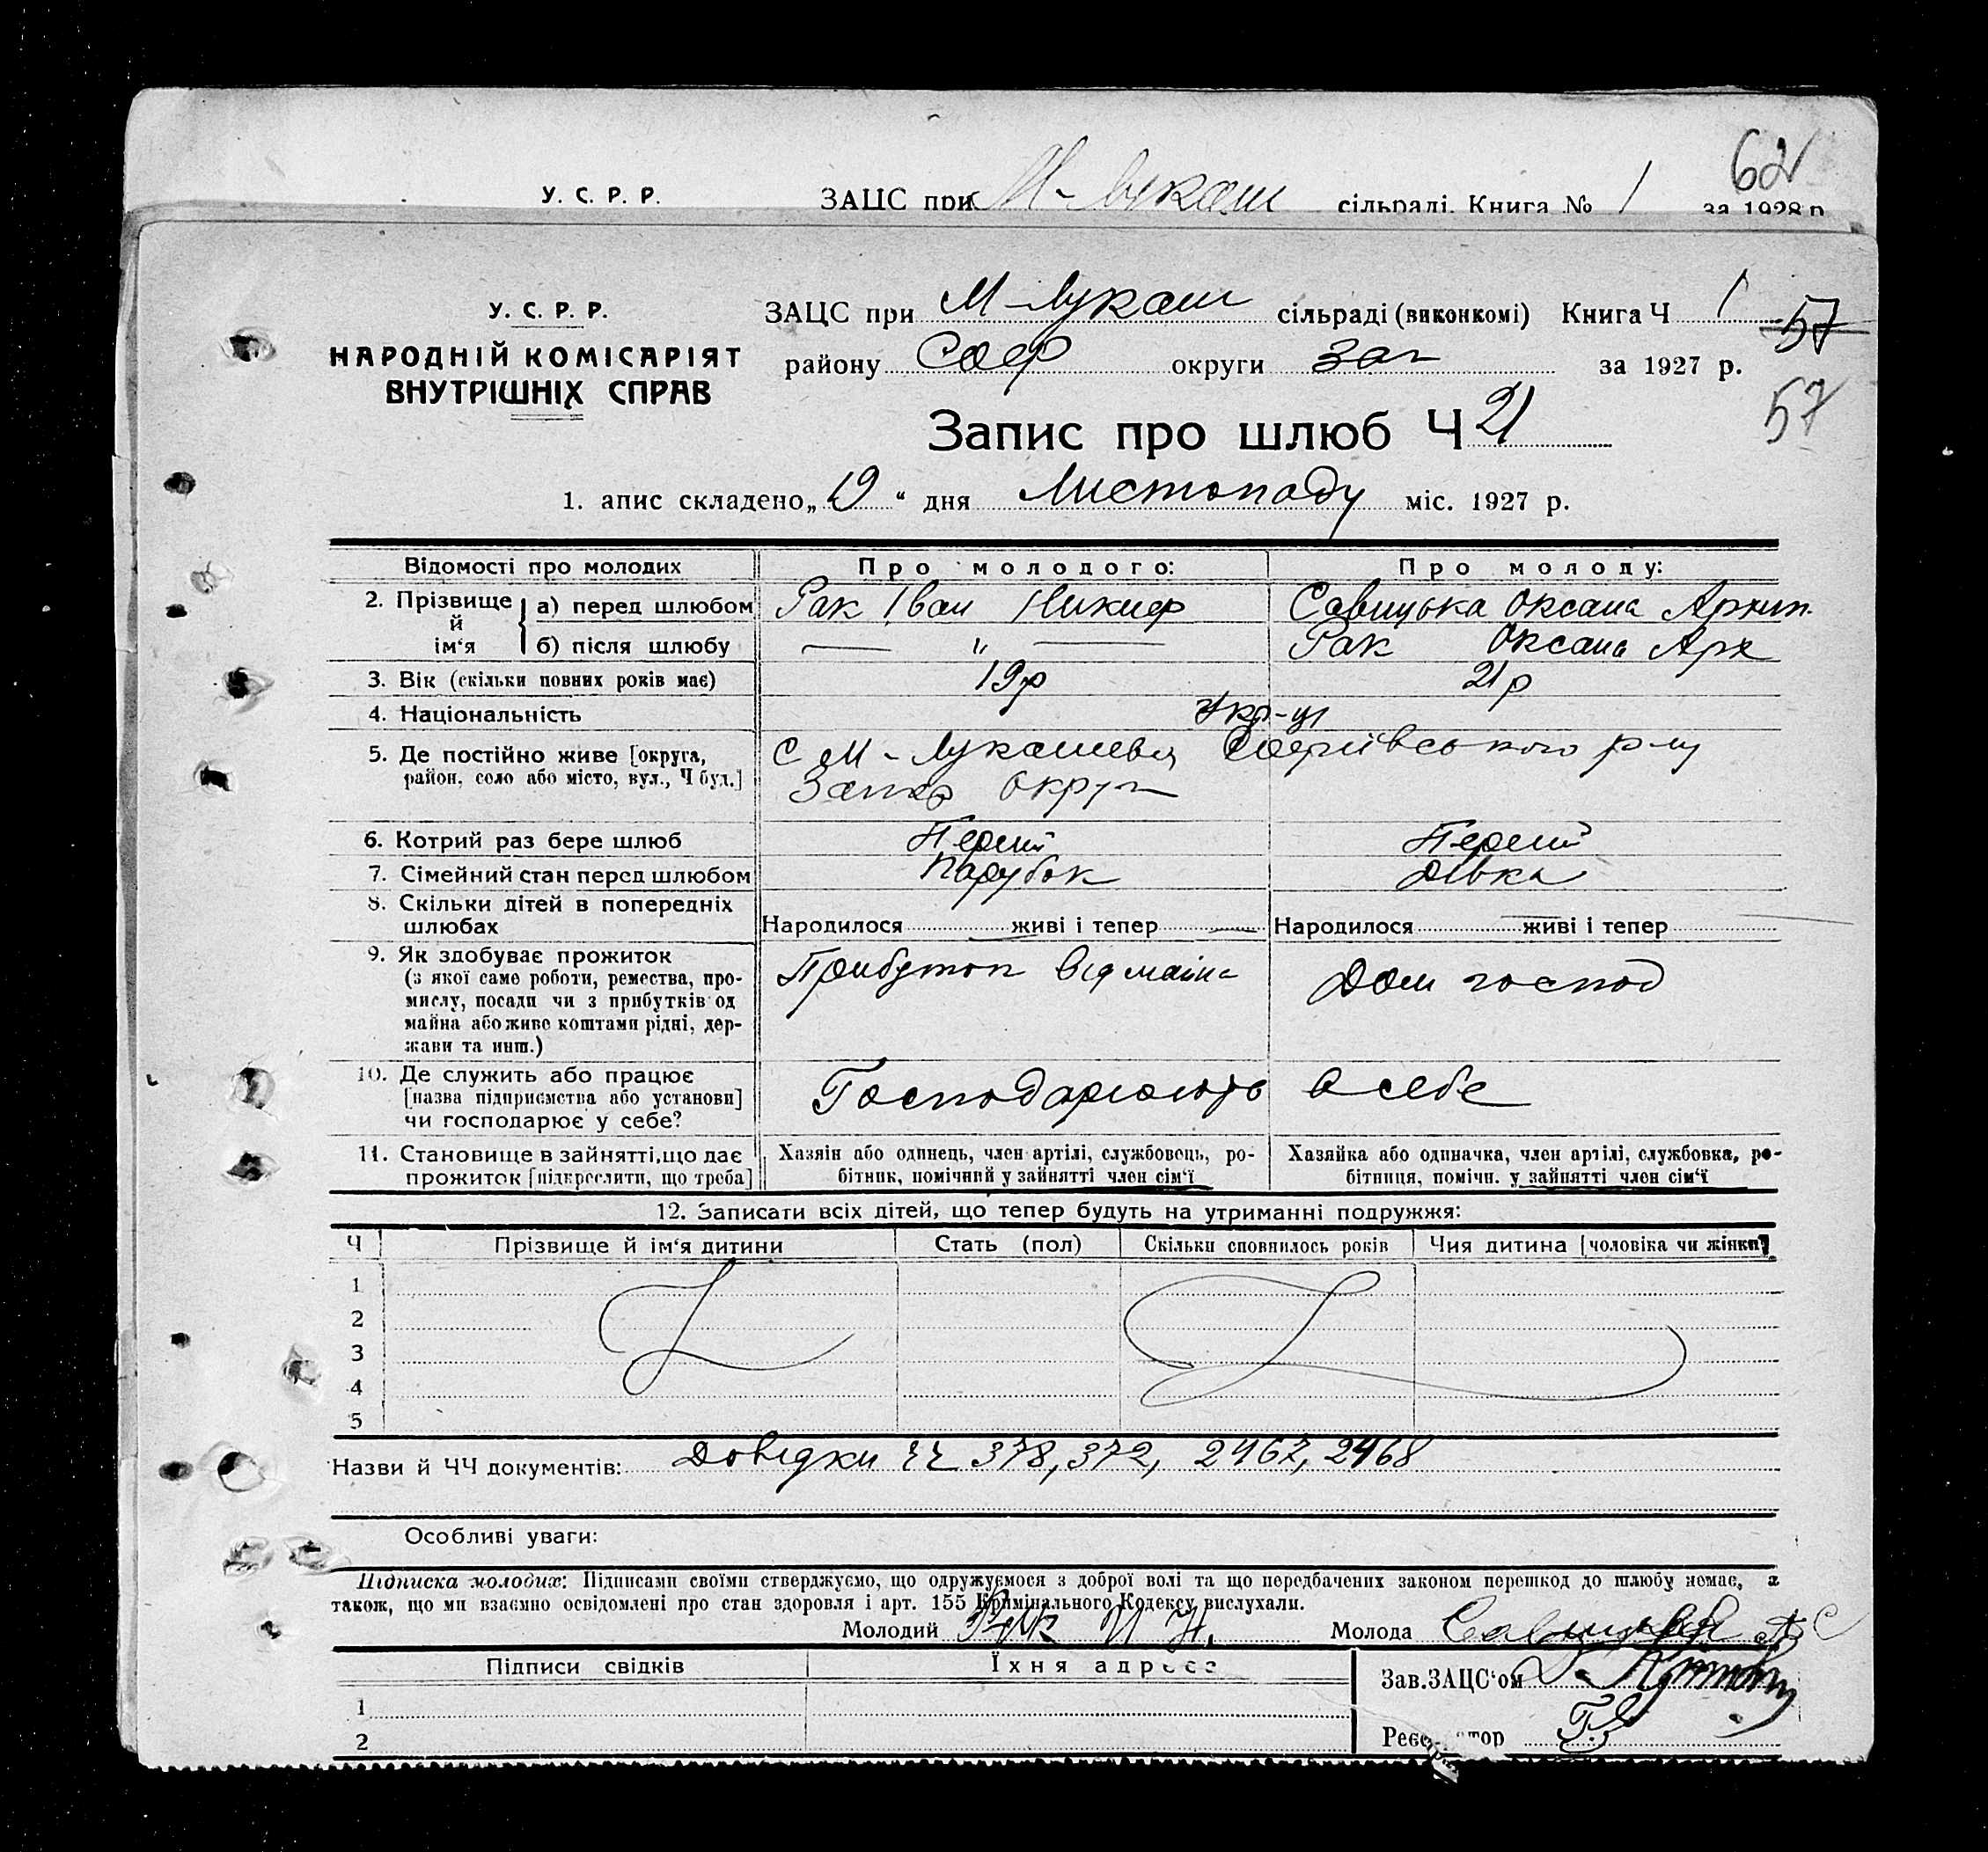 62
У. С. Р. Р. ЗАЦС при М-Лукаш сільраді. Книга № 1 за 1928 р
У. С. Р. Р.
НАРОДНІЙ КОМІСАРІЯТ
ВНУТРІШНІХ СПРАВ
ЗАЦС при М-Лукаш сільраді (виконкомі) Книга Ч 1
57
району Соф округи Зап за 1927 р.
57
Запис про шлюб Ч 21
1. апис складено „ 19 “ дня Листопаду міс. 1927 р.
Відомості про молодих Про молодого: Про молоду:
2. Прізвище й ім‘я а) перед шлюбом Рак Іван Никиф Савицька Оксана Архип.
б) після шлюбу — " — Рак Оксана Арх
3. Вік (скільки повних років має) 19 р 21 р
4. Національність Укр-ці
5. Де постійно живе [округа,
район, село або місто, вул., Ч буд.]
С М-Лукашевка Софиївського р-ну
Запор Округи
6. Котрий раз бере шлюб Перший Перший
7. Сімейний стан перед шлюбом Парубок Дівка
8. Скільки дітей в попередніх
шлюбах Народилося живі і тепер — Народилося — живі і тепер
9. Як здобуває прожиток
(з якої саме роботи, ремества, про-
мислу, посади чи з прибутків од
майна або живе коштами рідні, дер-
жави та инш.)
Прибуток від майна Дом господ
10. Де служить або працює
[назва підприємства або установи]
чи господарює у себе?
Господарюють в себе
11. Становище в зайнятті, що дає
прожиток [підкреслити, що треба]
Хазяїн або одинець, член артілі, службовець, ро-
бітник, помічний у зайнятті член сім‘ї
Хазяйка або одиначка, член артілі, службовка, ро-
бітниця, помічн. у зайнятті член сім‘ї
12. Записати всіх дітей, що тепер будуть на утриманні подружжя:
Ч Прізвище й ім‘я дитини Стать (пол) Скільки сповнилось років Чия дитина [чоловіка чи жінки]
1
2
3
4
5
Назви й ЧЧ документів: Довідки чч 378, 372, 2467, 2468
Особливі уваги:
Підписка молодих: Підписами своїми стверджуємо, що одружуємося з доброї волі та що передбачених законом перешкод до шлюбу немає, а
також, що ми взаємно освідомлені про стан здоровля і арт. 155 Кримінального Кодексу вислухали.
Молодий Рак И Н. Молода Савицкая
Підписи свідків Їхня адреса Зав.ЗАЦС‘ом
1
2 Реєстратор